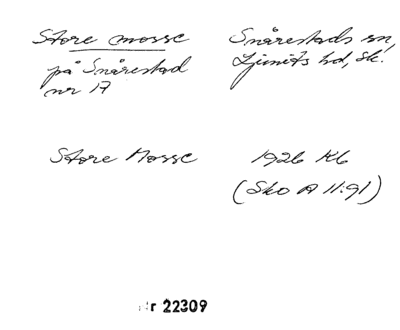 Store mosse
på Snårestad
nr 17
Snårestads sn,
Ljunits hd, Sk.
Store Mosse
1926 Kb
(Sko A 11:91)
r 22309